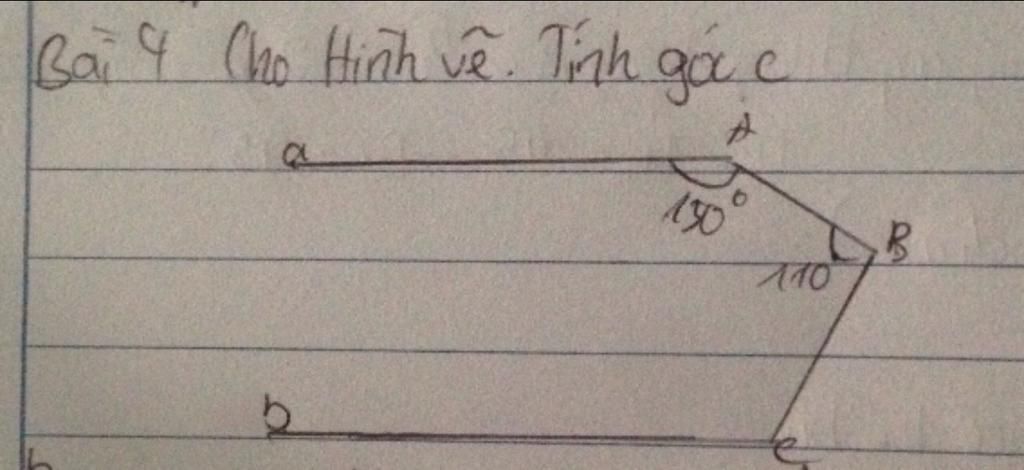 Bài 4 Cho Hình vẽ. Tính góc c
A
a
150°
B
110
b
c